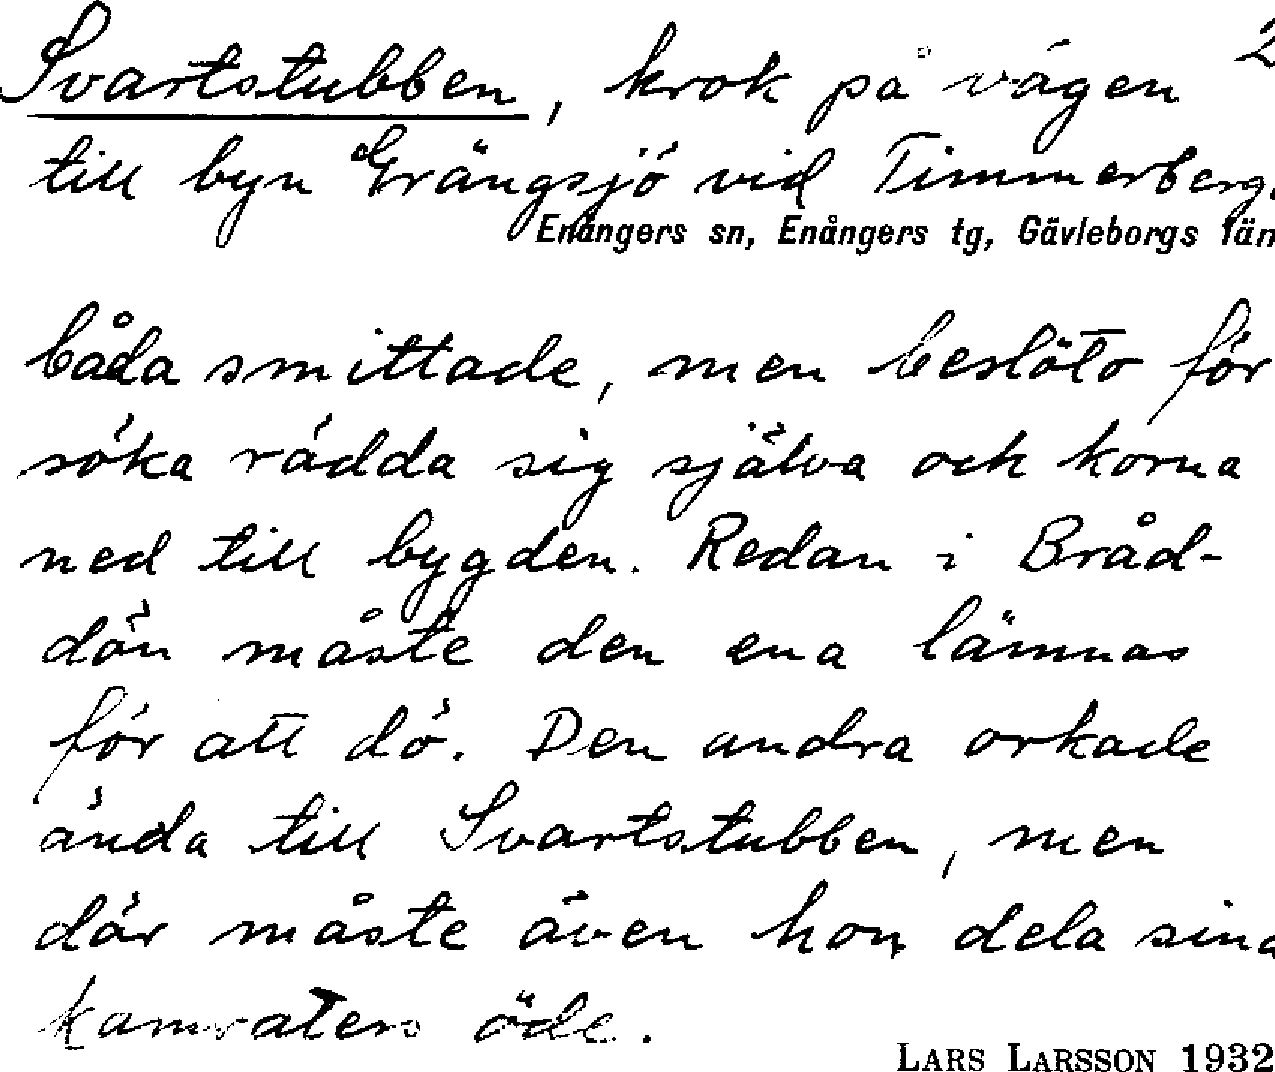 Svartstubben, krok på vägen 2
till byn Grängsjö vid Timmerberg.
Enångers sn, Enångers tg, Gävleborgs län
båda smittade, men beslöto för
söka rädda sig själva och korna
ned till bygden. Redan i Bråd-
dön måste den ena lämnas
för att dö. Den andra orkade
ända till Svartstubben, men
där måste även hon dela sina
kamraters öde.
LARS LARSSON 1932